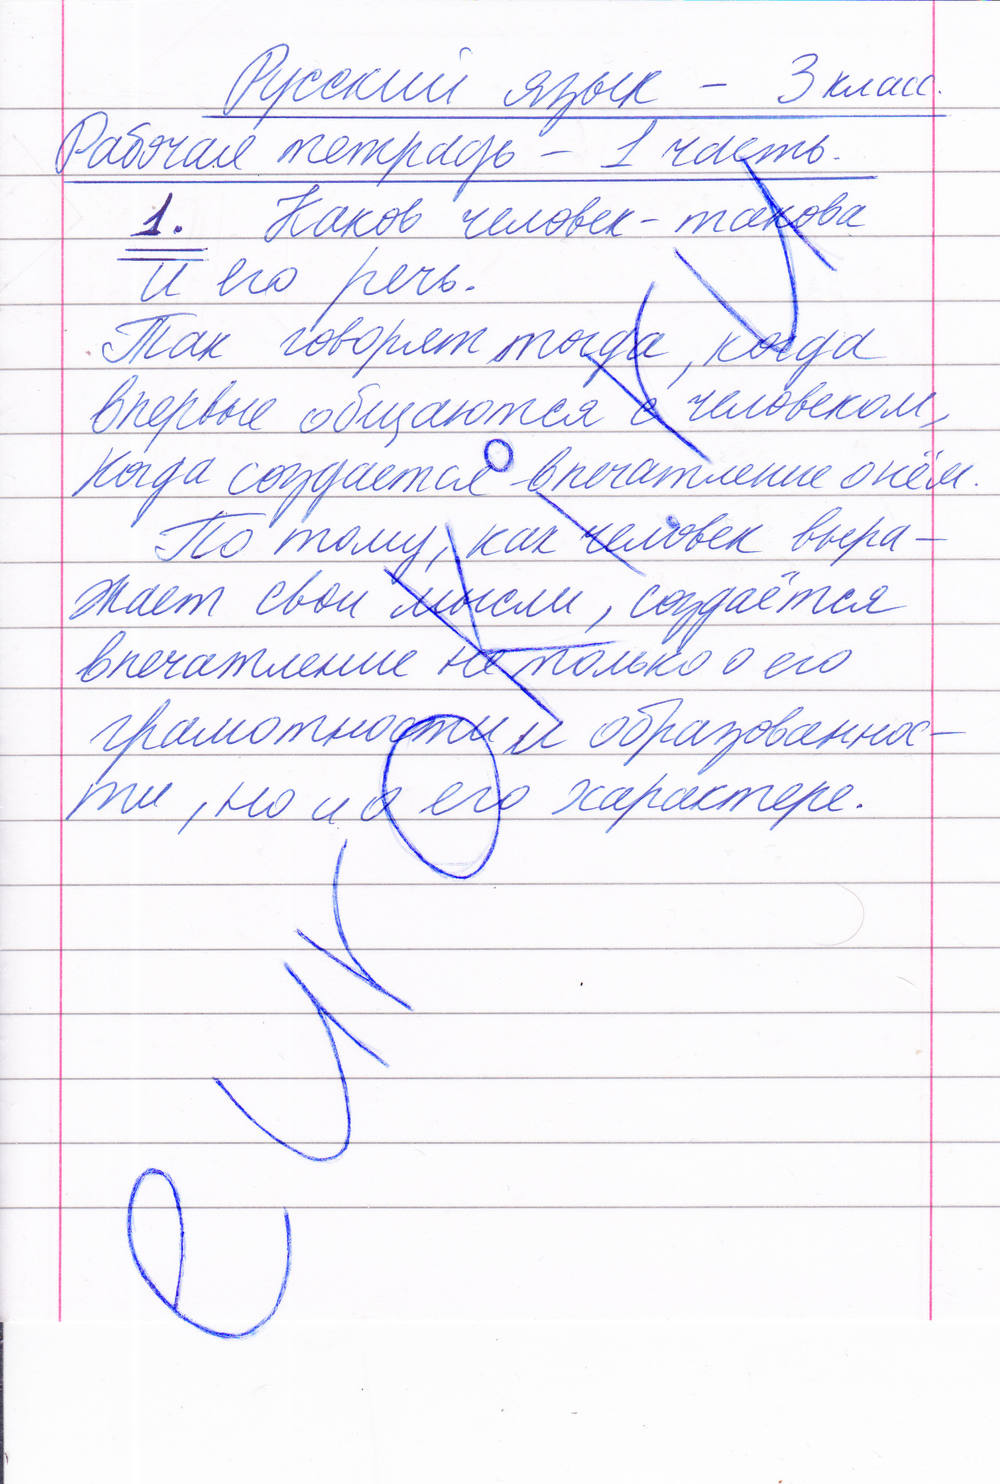 Русский язык - 3 класс.
Рабочая тетрадь - 1 часть.
1. Каков человек - такова
и его речь.
Так говорят тогда, когда
впервые общаются с человеком,
когда создается впечатление о нём.
По тому, как человек выра-
жает свои мысли, создаётся
впечатление не только о его
грамотности и образованнос-
ти, но и о его характере.